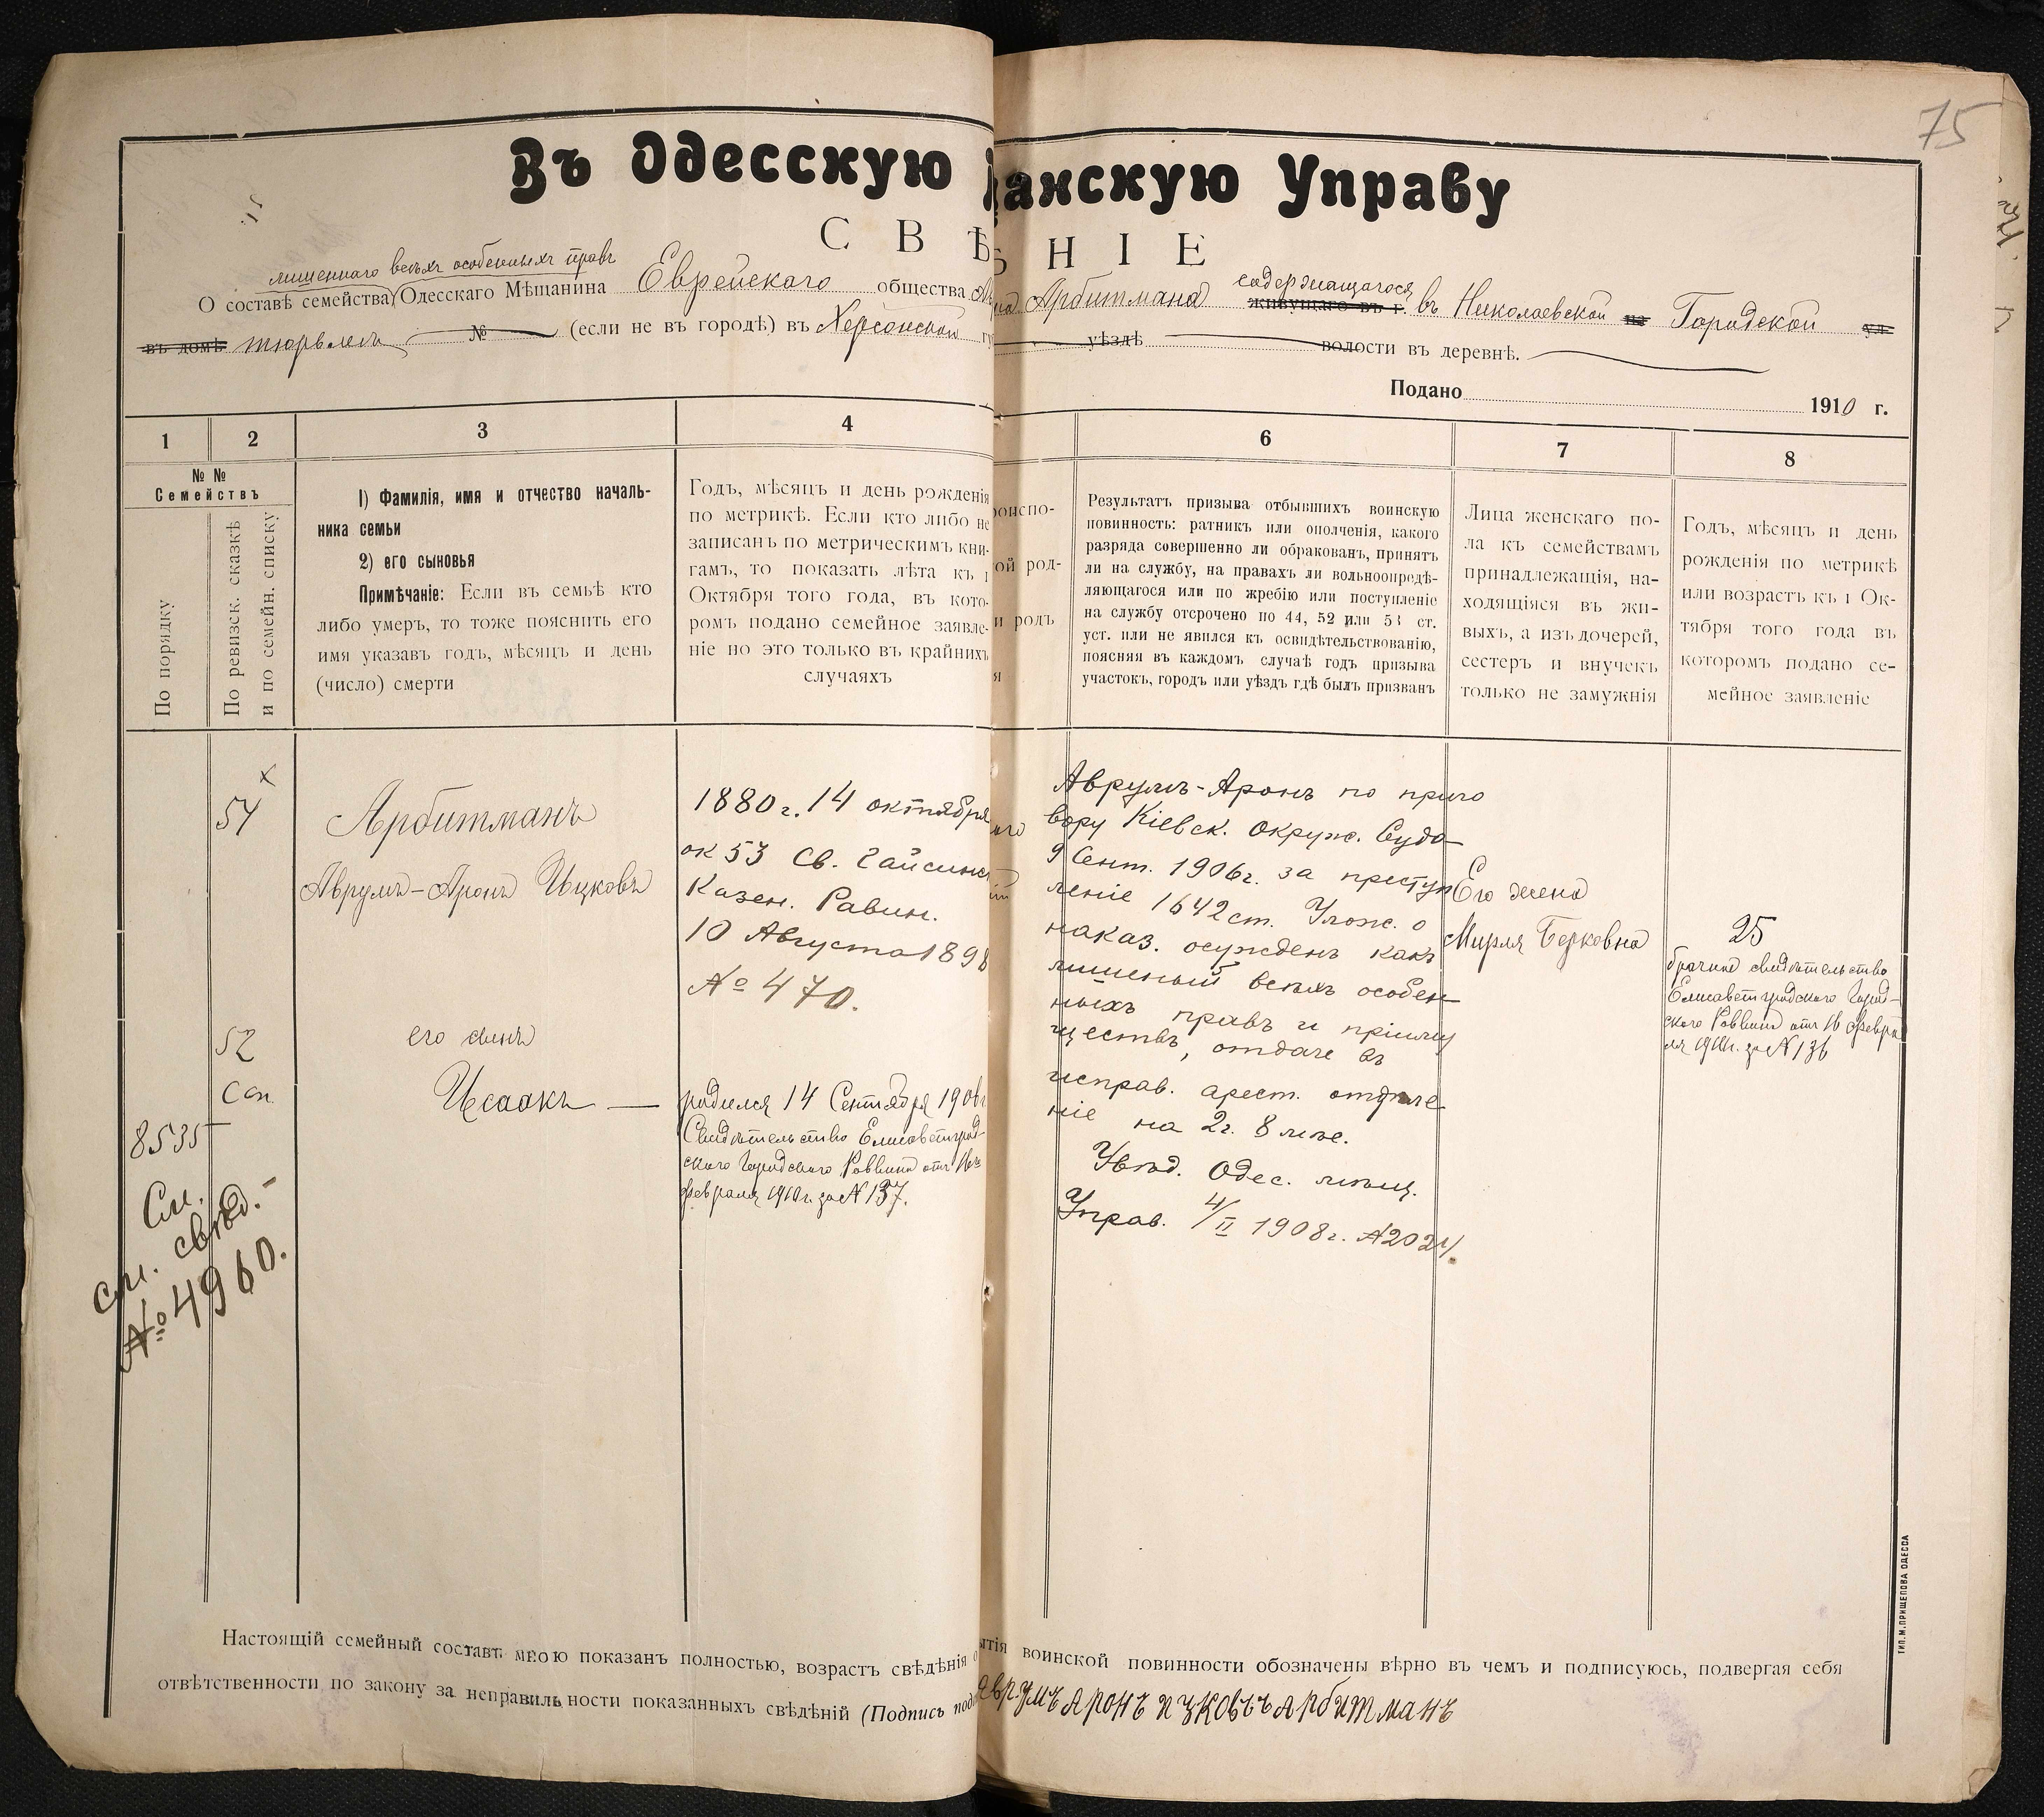 75
Въ Одесскую
анскую Управу
СВѢ
НІЕ
лишеннаго всѣхъ особенныхъ правъ
О составѣ семейства Одесскаго Мѣщанина Еврейскаго общества
Арбитмана содержащагося
живущаго въ г. въ Николаевской на Городской ул.
въ домѣ тюрьмѣ № (если не въ городѣ) въ Херсонской
уѣздѣ волости въ деревнѣ.
Подано 1910 г.
1
2
3
4
6
7
8
№ №
Семействъ
По порядку
По ревизск. сказкѣ
и по семейн. списку
1) Фамилія, имя и отчество началь-
ника семьи
2) его сыновья
Примѣчаніе: Если въ семьѣ кто
либо умеръ, то тоже пояснить его
имя указавъ годъ, мѣсяцъ и день
(число) смерти
Годъ, мѣсяцъ и день рожденія
по метрикѣ. Если кто либо не
записанъ по метрическимъ кни-
гамъ, то показать лѣта къ 1
Октября того года, въ кото-
ромъ подано семейное заявле-
ніе но это только въ крайнихъ
случаяхъ
роиспо-
ой род-
и родъ
я
Результатъ призыва отбывшихъ воинскую
повинность: ратникъ или ополченія, какого
разряда совершенно ли обракованъ, принятъ
ли на службу, на правахъ ли вольноопредѣ-
ляющагося или по жребію или поступленіе
на службу отсрочено по 44, 52 или 53 ст.
уст. или не явился къ освидѣтельствованію,
поясняя въ каждомъ случаѣ годъ призыва
участокъ, городъ или уѣздъ гдѣ былъ призванъ
Лица женскаго по-
ла къ семействамъ
принадлежащія, на-
ходящіяся въ жи-
выхъ, а изъ дочерей,
сестеръ и внучекъ
только не замужнія
Годъ, мѣсяцъ и день
рожденія по метрикѣ
или возрастъ къ 1 Ок-
тября того года въ
которомъ подано се-
мейное заявленіе
54
Арбитманъ
Аврумъ-Аронъ Ицковъ
1880 г. 14 октября
ок 53 Св. Гайсинс
Казен. Равин.
10 Августа 1898
№ 470.
52
Соп.
8535
его сынъ
Исаакъ —
родился 14 Сентября 1906 г
Свидѣтельство Елисаветград-
скаго Городскаго Раввина отъ 16го
февраля 1910 г. за № 137.
См.
см. свѣд.
№ 4960.
Аврумъ-Аронъ по приго
вору Кіевск. Окружн. Суда
9 Сент. 1906 г. за преступ
леніе 1642 ст. Улож. о
наказ. осужденъ какъ
лишеный всѣхъ особен-
ныхъ правъ и приіму
ществъ, отдаче въ
исправ. арест. отдѣле
ніе на 2 г. 8 мѣс.
Увѣд. Одес. мѣщ.
Управ. 4/II 1908 г. № 2024.
Его жена
Мирля Берковна
25
брачное свидѣтельство
Елисаветградскаго Город-
скаго Раввина отъ 16 февра
ля 1910 г. за № 136
Настоящій семейный составъ мною показанъ полностью, возрастъ свѣдѣнія о
ытія воинской повинности обозначены вѣрно въ чемъ и подписуюсь, подвергая себя
отвѣтственности по закону за неправильности показанныхъ свѣдѣній (Подпись пода
Аврумъ Аронъ Ицковъ Арбитманъ
ТИП. М. ПРИЩЕПОВА ОДЕССА